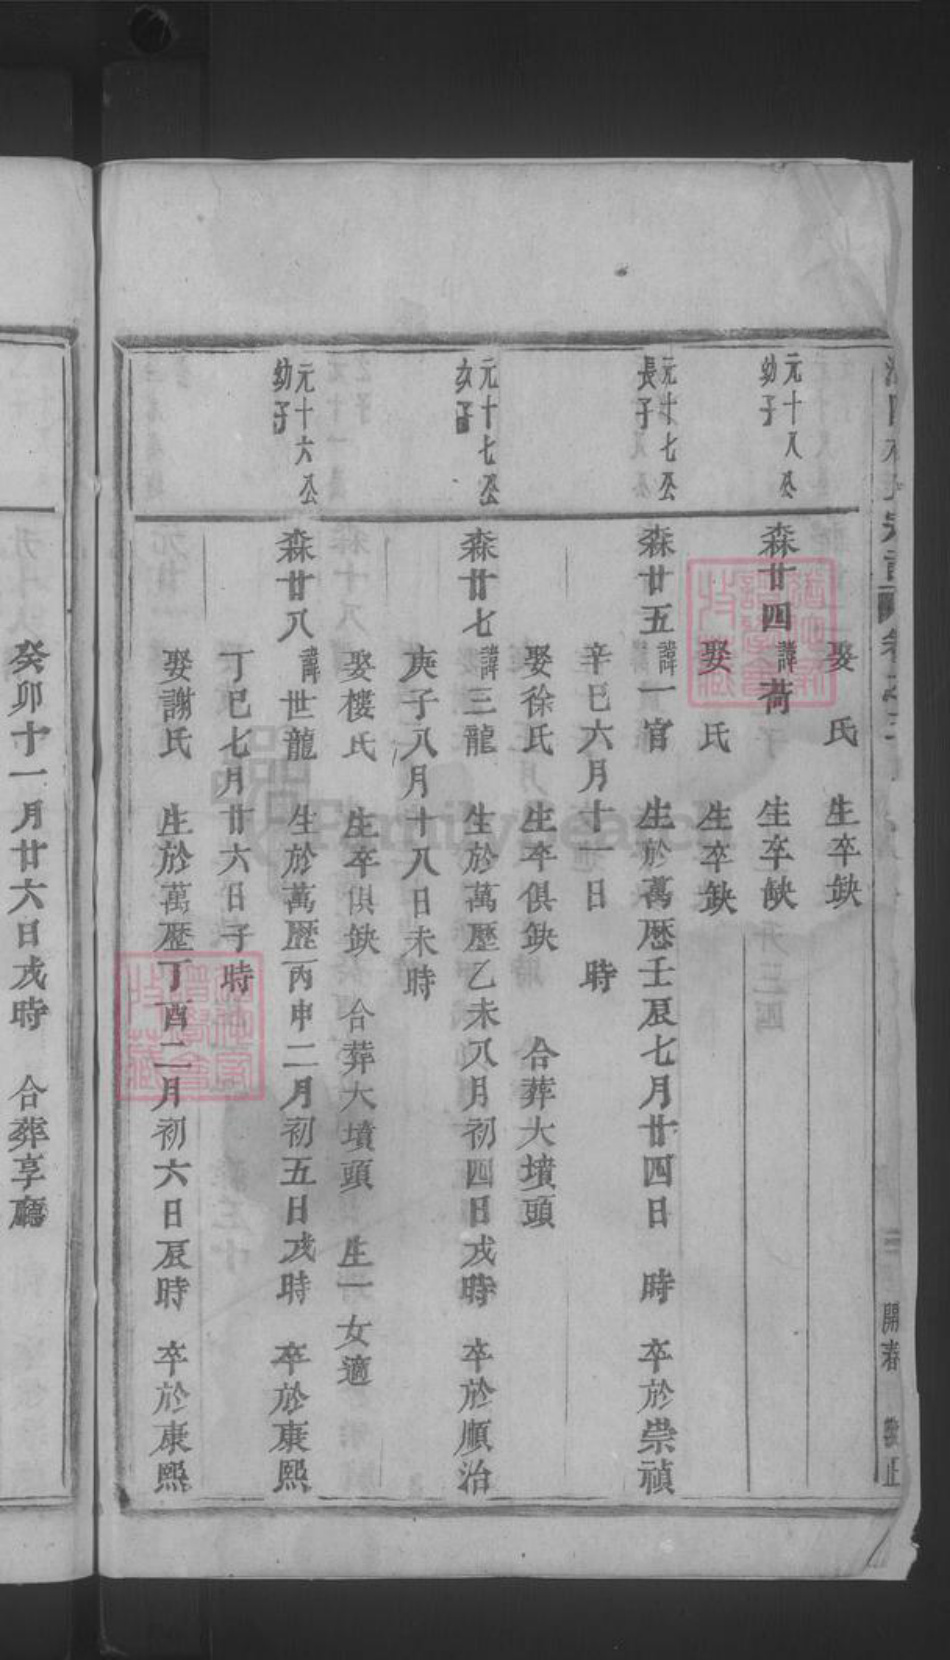 娶　氏　生卒缺
元十八公
幼子
森廿四 諱荷　生卒缺
娶　氏　生卒缺
元十七公
長子
森廿五 諱一官　生於萬歷壬辰七月廿四日　時　卒於崇禎
辛巳六月十一日　時
娶徐氏　生卒俱缺　合葬大墳頭
元十七公
次子
森廿七 諱三龍　生於萬歷乙未八月初四日戌時　卒於順治
庚子八月十八日未時
娶樓氏　生卒俱缺　合葬大墳頭　生一女適
元十六公
幼子
森廿八 諱世龍　生於萬歷丙申二月初五日戌時　卒於康熙
丁巳七月廿六日子時
娶謝氏　生於萬歷丁酉二月初六日辰時　卒於康熙
癸卯十一月廿六日戌時　合葬享廳
FamilySearch